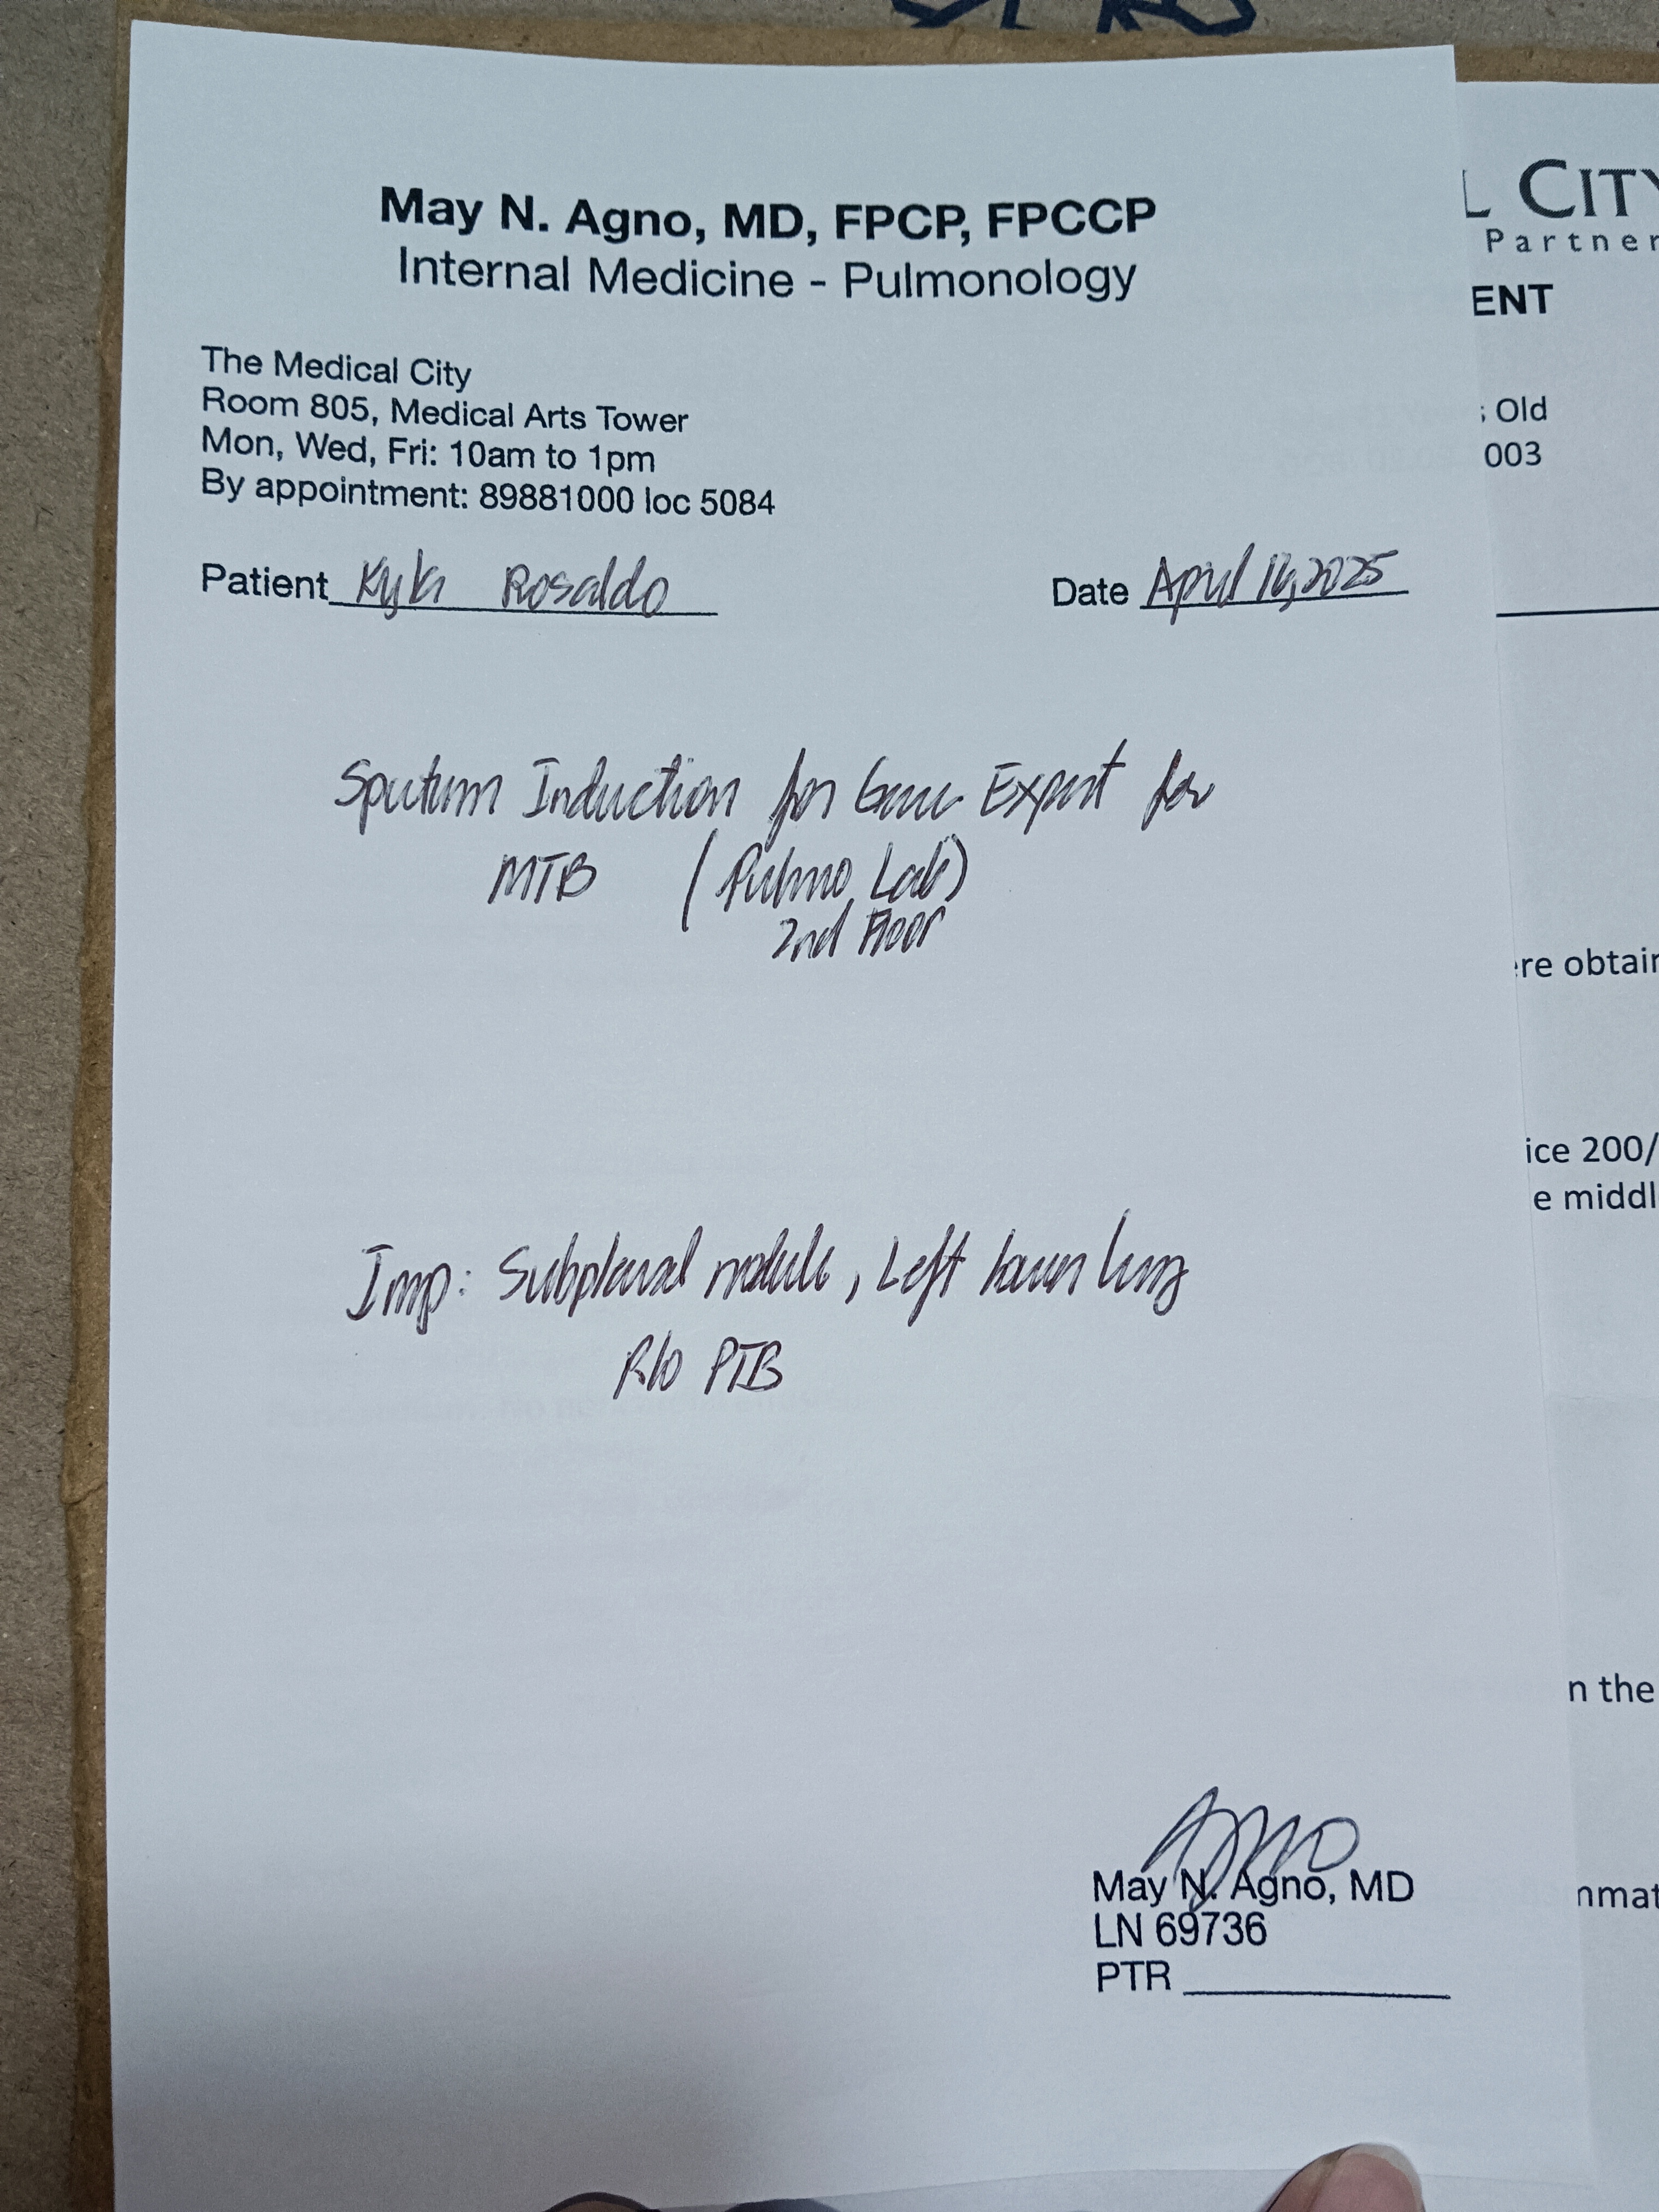 May N. Agno, MD, FPCP, FPCCP
Internal Medicine - Pulmonology
The Medical City
Room 805, Medical Arts Tower
Mon, Wed, Fri: 10am to 1pm
By appointment: 89881000 loc 5084
Patient Kyla Rosaldo Date April 16, 2025
Sputum Induction for Gene Expert for
MTB (Pulmo Lab)
2nd Floor
Imp: Subpleural nodule, Left lower lung
R/o PTB
May N. Agno, MD
LN 69736
PTR
L CITY
Partner
ENT
Old
003
re obtain
ice 200/
e middl
n the
nmat